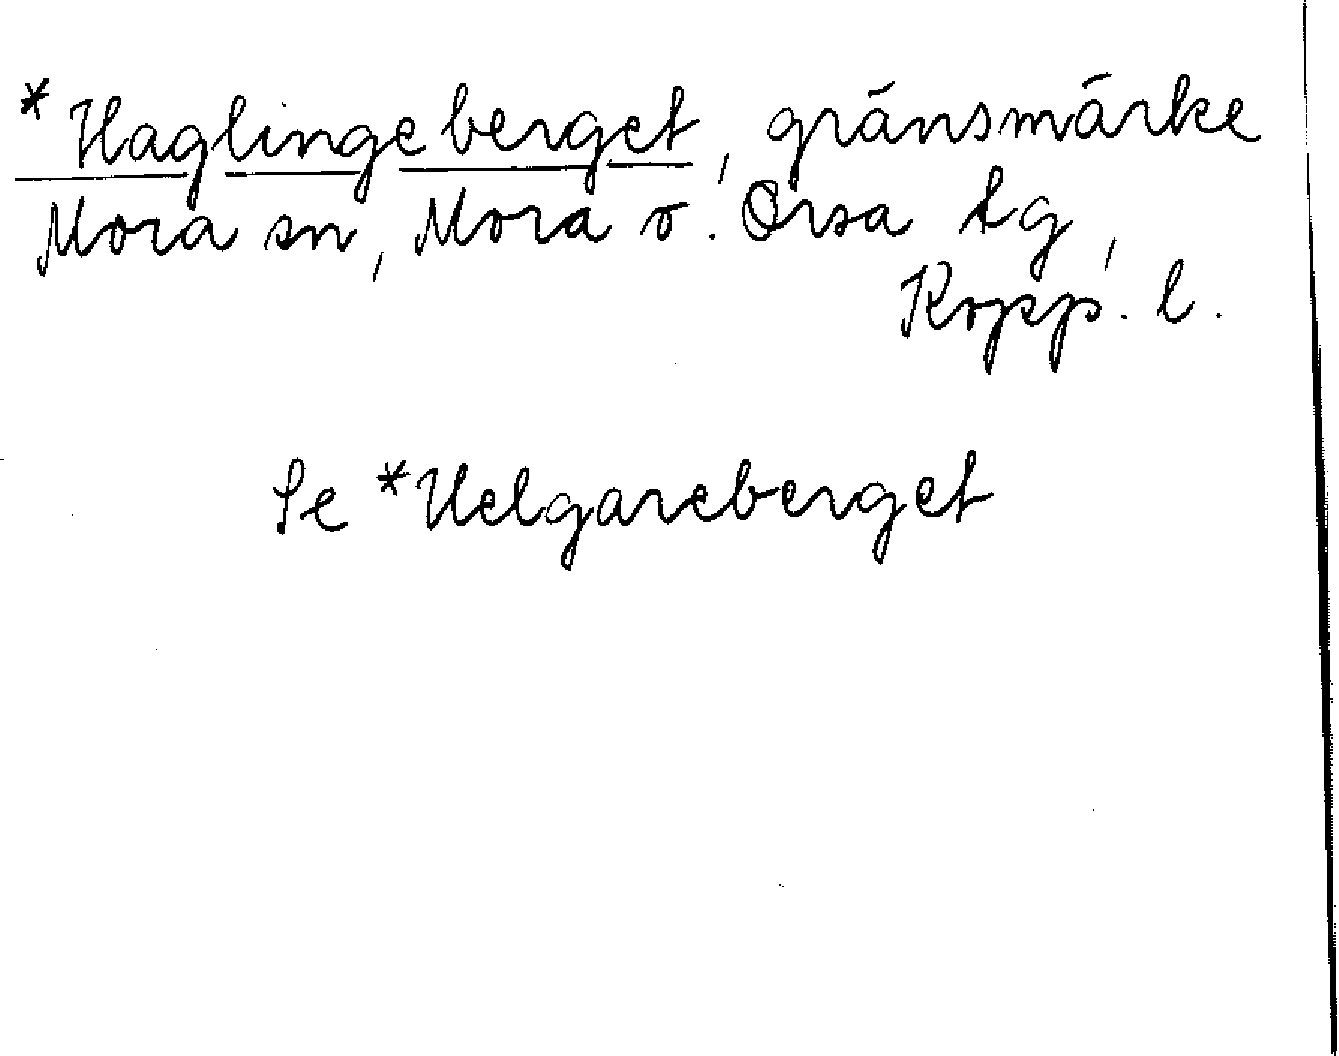 *Haglingeberget, gränsmärke
Mora sn, Mora o. Orsa tg,
Kopp. l.
Se *Helgareberget